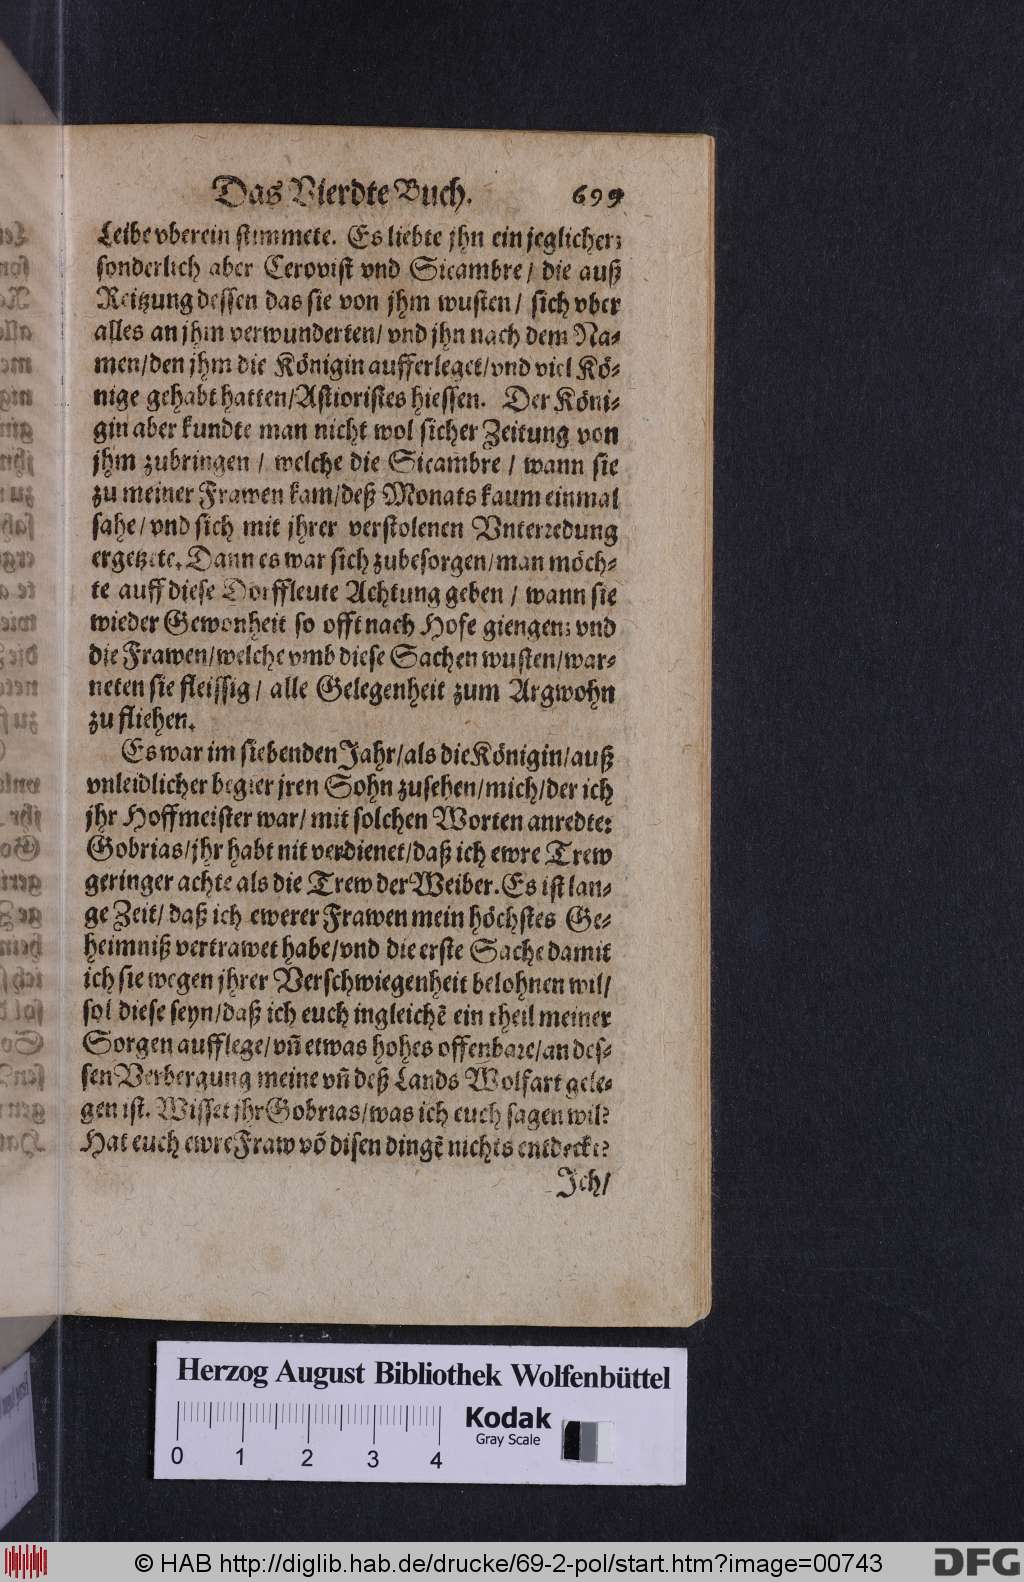 Das Vierdte Buch. 699
Leibe vberein stimmete. Es liebte jhn ein jeglicher;
sonderlich aber Cerovist vnd Sicambre/ die auß
Reitzung dessen das sie von jhm wusten/ sich vber
alles an jhm verwunderten/ vnd jhn nach dem Na-
men/den jhm die Königin aufferleget/vnd viel Kö-
nige gehabt hatten/Astioristes hiessen. Der Köni-
gin aber kundte man nicht wol sicher Zeitung von
jhm zubringen / welche die Sicambre / wann sie
zu meiner Frawen kam/deß Monats kaum einmal
sahe/ vnd sich mit jhrer verstolenen Vnterredung
ergetzete. Dann es war sich zubesorgen/man möch-
te auff diese Dorffleute Achtung geben / wann sie
wieder Gewonheit so offt nach Hofe giengen; vnd
die Frawen/welche vmb diese Sachen wusten/war-
neten sie fleissig/ alle Gelegenheit zum Argwohn
zu fliehen.
Es war im siebenden Jahr/als die Königin/auß
vnleidlicher begier jren Sohn zusehen/mich/der ich
jhr Hoffmeister war/ mit solchen Worten anredte:
Gobrias/jhr habt nit verdienet/daß ich ewre Trew
geringer achte als die Trew der Weiber. Es ist lan-
ge Zeit/ daß ich ewerer Frawen mein höchstes Ge-
heimniß vertrawet habe/vnd die erste Sache damit
ich sie wegen jhrer Verschwiegenheit belohnen wil/
sol diese seyn/daß ich euch ingleichē ein theil meiner
Sorgen aufflege/vn̄ etwas hohes offenbare/an des-
sen Verbergung meine vn̄ deß Lands Wolfart gele-
gen ist. Wisset jhr Gobrias/was ich euch sagen wil?
Hat euch ewre Fraw vō disen dingē nichts entdeckt?
Jch/
Herzog August Bibliothek Wolfenbüttel
0 1 2 3 4
Kodak
Gray Scale
© HAB http://diglib.hab.de/drucke/69-2-pol/start.htm?image=00743
DFG